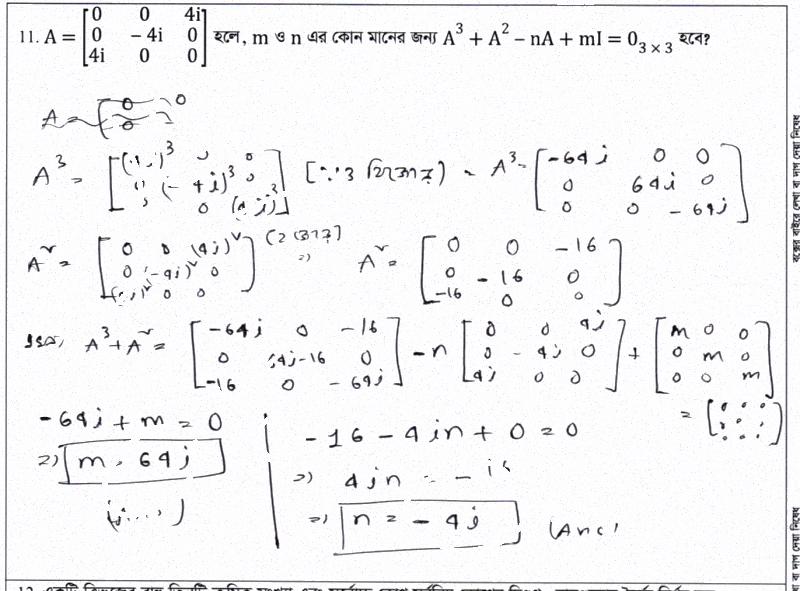 11. A = [0 0 4i; 0 - 4i 0; 4i 0 0] হলে, m ও n এর কোন মানের জন্য A³ + A² – nA + mI = 0₃ ₓ ₃ হবে?
A³ = [ (- 4i)³ ] [∵ 3 বিজোড়] A³ = [-64i 0 0; 0 64i 0; 0 0 -64i]
A² = [0 0 (4i)²; 0 (-4i)² 0; (4i)² 0 0] [2 জোড়] ⇒ A² = [0 0 -16; 0 -16 0; -16 0 0]
A³+A² = [-64i 0 -16; 0 64i-16 0; -16 0 -64i] - n [0 0 4i; 0 -4i 0; 4i 0 0] + [m 0 0; 0 m 0; 0 0 m]
= [0 0 0; 0 0 0; 0 0 0]
-64i + m = 0
⇒ m = 64i
-16 - 4in + 0 = 0
⇒ 4in = -16
⇒ n = -4i
বক্সের বাইরে লেখা বা দাগ দেয়া নিষেধ
বা দাগ দেয়া নিষেধ